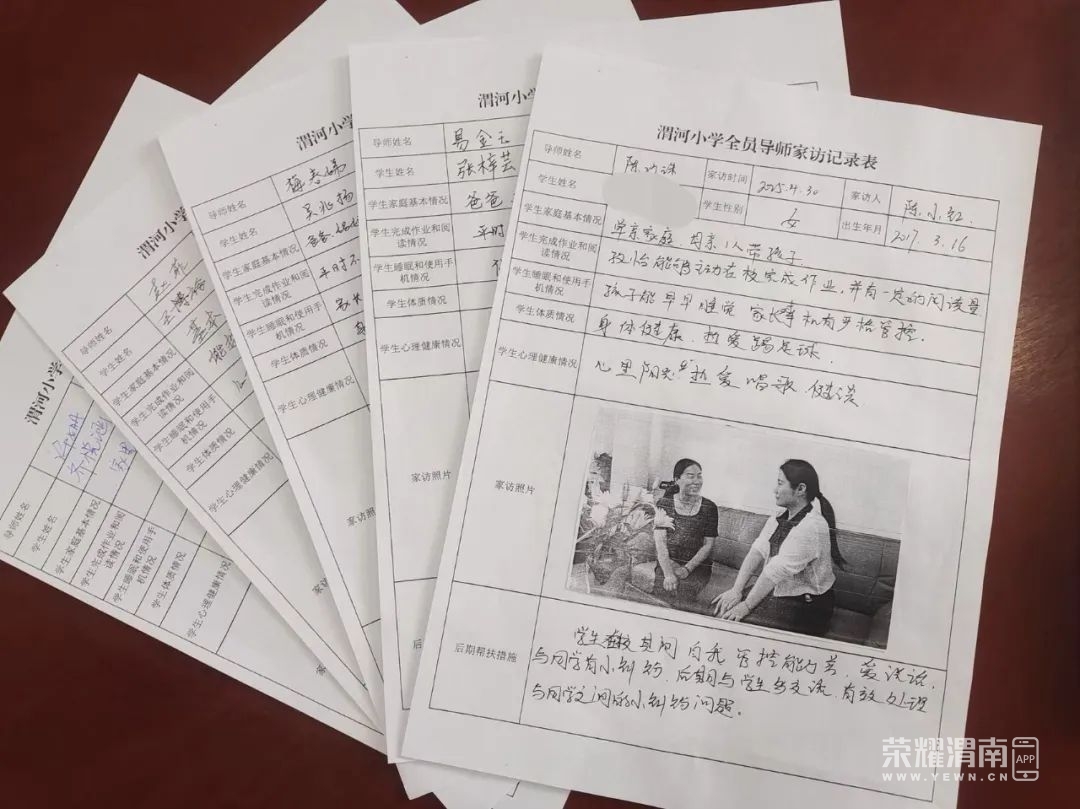 渭河小学全员导师家访记录表
导师姓名
家访时间 2025.4.30
家访人 陈小红
学生姓名
学生性别 女
出生年月 2017.3.16
学生家庭基本情况 单亲家庭，母亲1人带孩子
学生完成作业和阅读情况 能够主动在校完成作业，并有一定的阅读量
学生睡眠和使用手机情况 孩子能早早睡觉 家长 手机有严格管控.
学生体质情况 身体健康，热爱踢足球.
学生心理健康情况 心里阳光 热爱唱歌
家访照片
后期帮扶措施
学生在校期间自我管控能力差，爱说话，
与同学有小纠纷，后期与学生多交谈，有效处理
与同学之间的小纠纷问题。
渭河小学
导师姓名 易金
学生姓名 张梓芸
学生家庭基本情况 爸爸
学生完成作业和阅读情况 平时
学生睡眠和使用手机情况
学生体质情况
学生心理健康情况
家访照片
后
渭河小学
导师姓名
学生姓名
学生家庭基本情况
学生完成作业和阅读情况 平时不
学生睡眠和使用手机情况 家长
学生体质情况
学生心理健康情况
家访照片
渭河小学
导师姓名
学生姓名
学生家庭基本情况 基本
学生完成作业和阅读情况
学生睡眠和使用手机情况
学生体质情况
学生心理健康情况
家
渭河小学
导师姓名
学生姓名
学生家庭基本情况
学生完成作业和阅读情况
学生睡眠和使用手机情况
学生体质情况
学生心理健康情况
家
荣耀渭南 APP
WWW.YEWN.CN